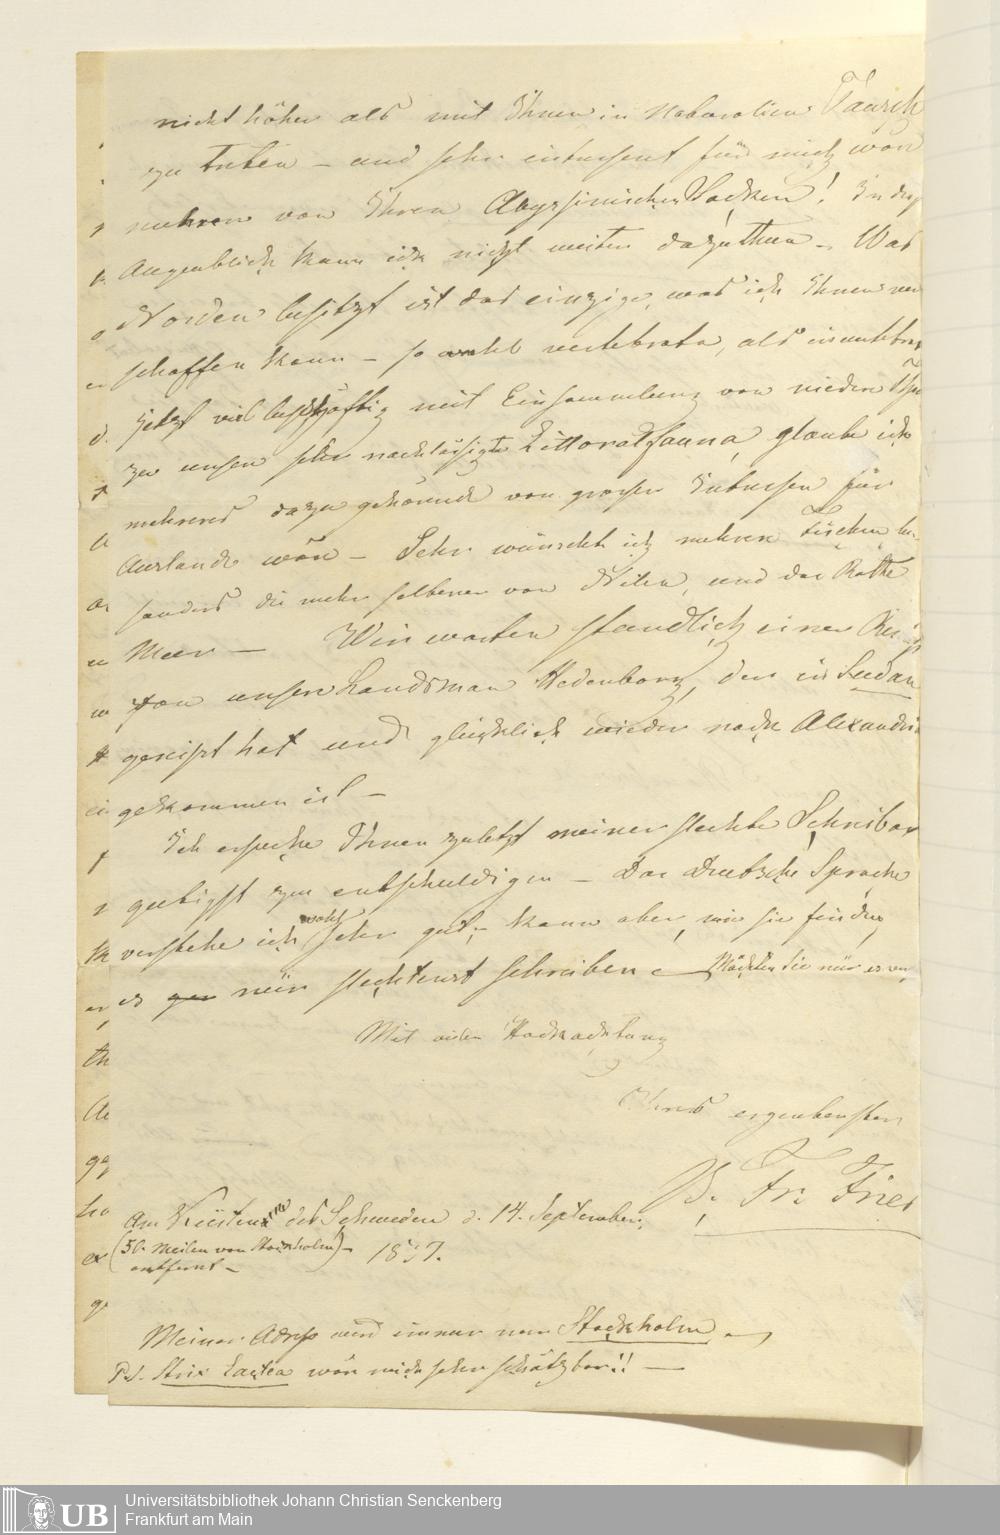 nicht höher als mit Ihnen in Naturalien Tausch
zu treten – und sehr interesent für mich wär
mehren von Ihren Abyssinischen Sachen! In dies
Augenblick kann ich nicht weiter dazu thun – Was
Norden besitzt ist das einzige, was ich Ihnen ver
schaffen kann – so wohl vertebrata, als invertebra
Jetzt viel beschäftig mit Einsammlung von niedern Thie
zu unsern sehr nachläsigte Littoralfauna, glaube ich
mehreres dazu gehörende von grosser Interesse für
Auslande wäre – Sehr wünscht ich mehren Fischen be-
sonders die mehr seltener von Nilen, und das Rothe
Meer – Wir warten standlich einer
von unsern Landsman Hedenborg, der in Sudan
gereist hat und glücklich wieder nach Alexandri
gekommen ist –
Ich ersuche Ihnen zuletzt meiner slechte Schreibar
gutigst zu entschuldigen – Das Deutsche Sprache
verstehe ich wohl sehr gut, kann aber, wie sie finden,
es nur slechtenst schreiben – Möchten Sie nur es ver
Mit aller Hochachtung
Ihres ergenbensten
B. Fr. Fries
Am Küsten des Schweden d. 14. September,
(50. Meilen von Stockholm) – 1837.
entfernt –
Meiner Adress wird immer nur Stockholm –
P.S. Strix Lactea wär mich sehr schätzbar!! –
Universitätsbibliothek Johann Christian Senckenberg
Frankfurt am Main
UB